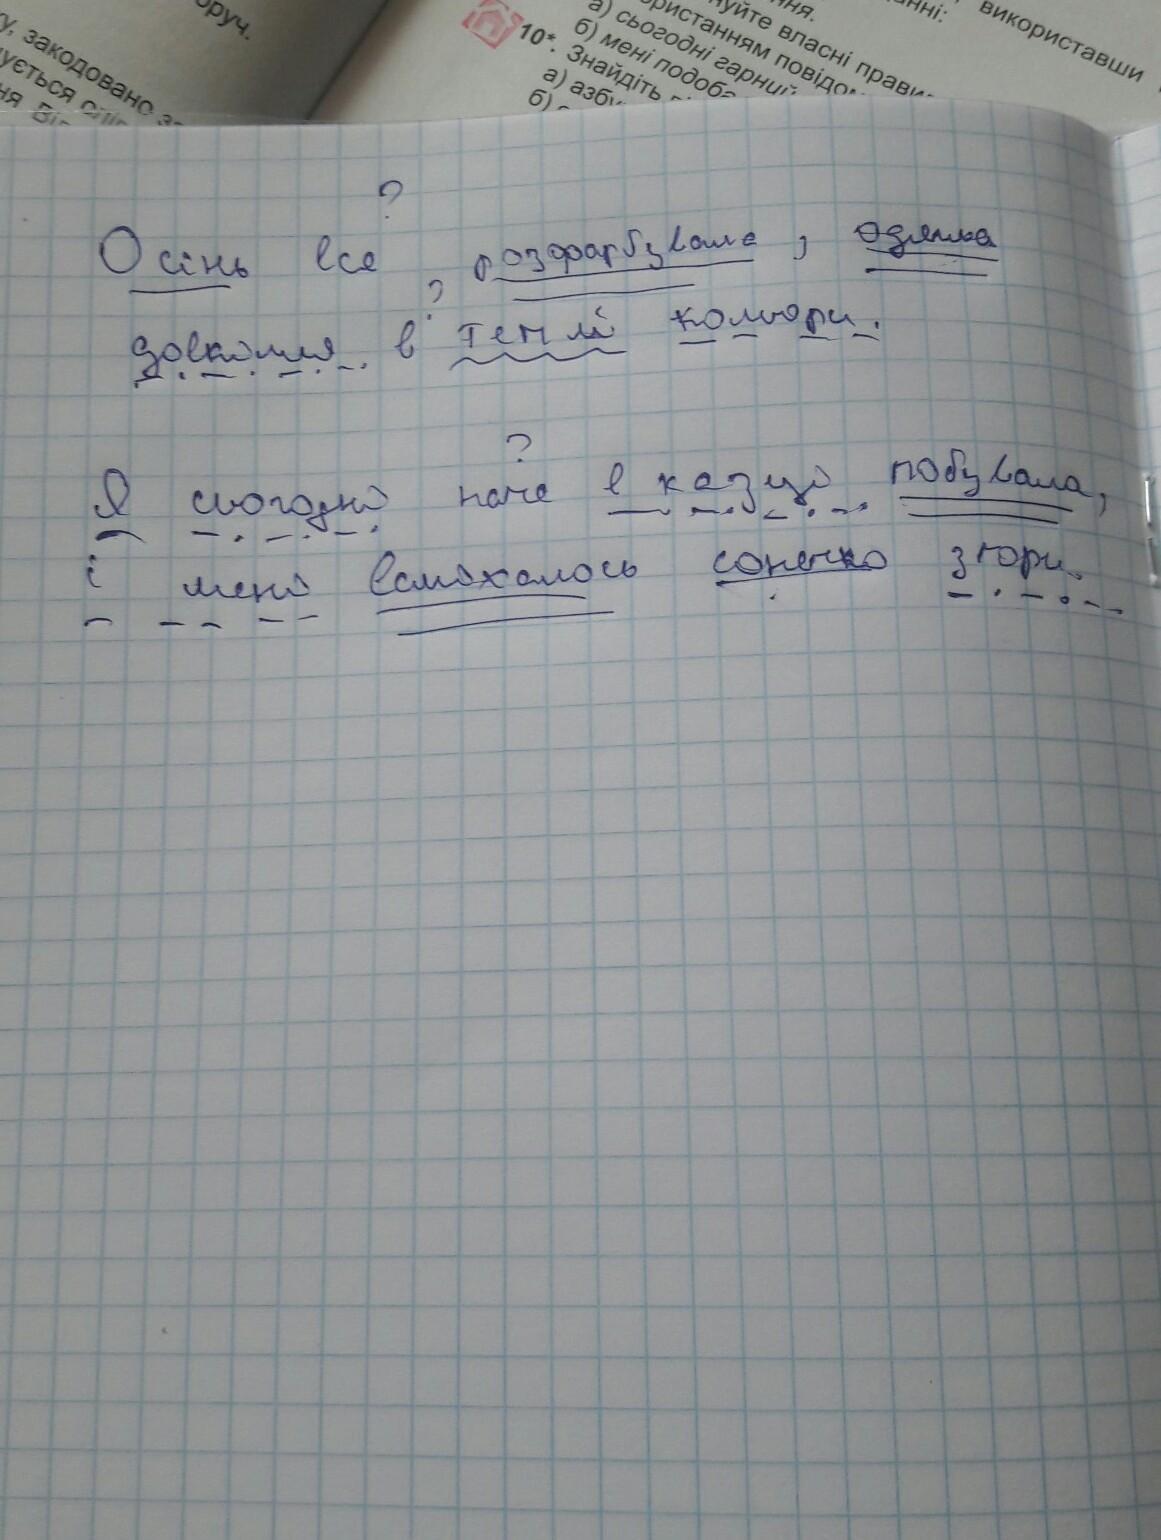 оруч.
у, закодовано
ується
ня
використавши
анні:
ння.
нуйте власні прави
ристанням повідо
а) сьогодні гарний
б) мені подоба
10*. Знайдіть
а) азбу
б)
?
Осінь все розфарбувала, одягла
?
довкілля в теплі кольори.
?
Я сьогодні наче в казці побувала,
і мені всміхалось сонечко згори.